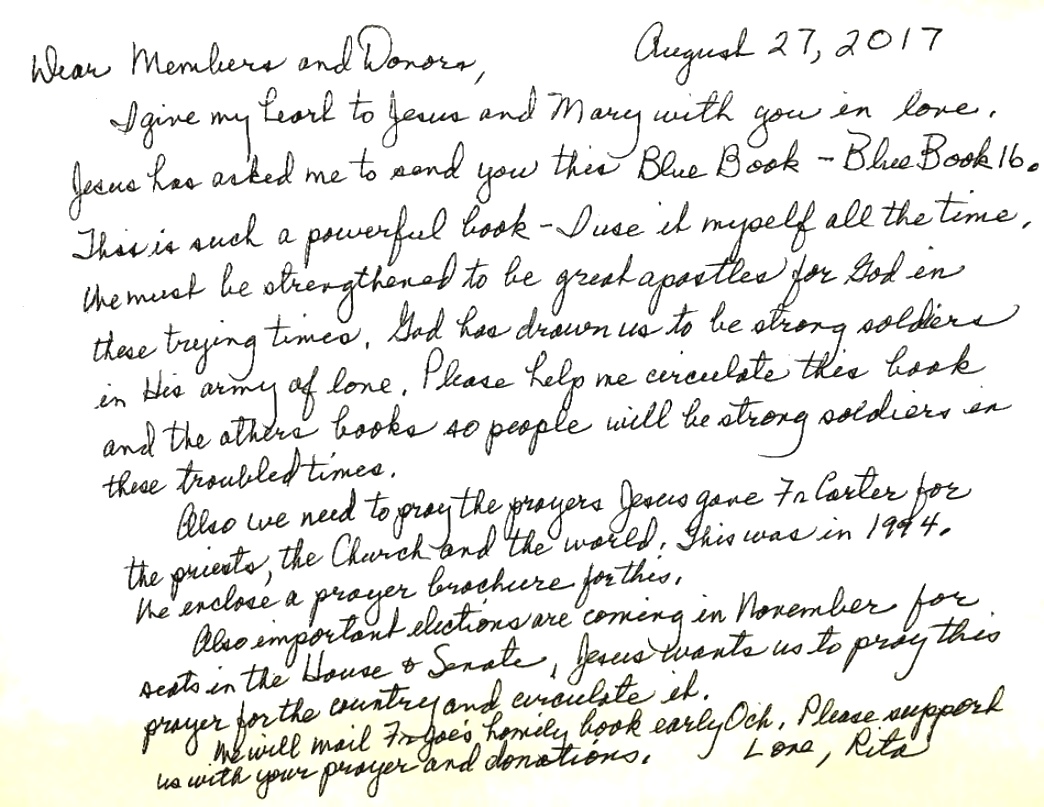 August 27, 2017
Dear Members and Donors,
I give my heart to Jesus and Mary with you in love.
Jesus has asked me to send you this Blue Book - Blue Book 16.
This is such a powerful book - I use it myself all the time.
We must be strengthened to be great apostles for God in
these trying times. God has drawn us to be strong soldiers
in His army of love. Please help me circulate this book
and the others books so people will be strong soldiers in
these troubled times.
Also we need to pray the prayers Jesus gave Fr Carter for
the priests, the Church and the world. This was in 1994.
We enclose a prayer brochure for this.
Also important elections are coming in November for
seats in the House & Senate, Jesus wants us to pray this
prayer for the country and circulate it.
We will mail Fr Joe's homily book early Oct. Please support
us with your prayer and donations. Love, Rita